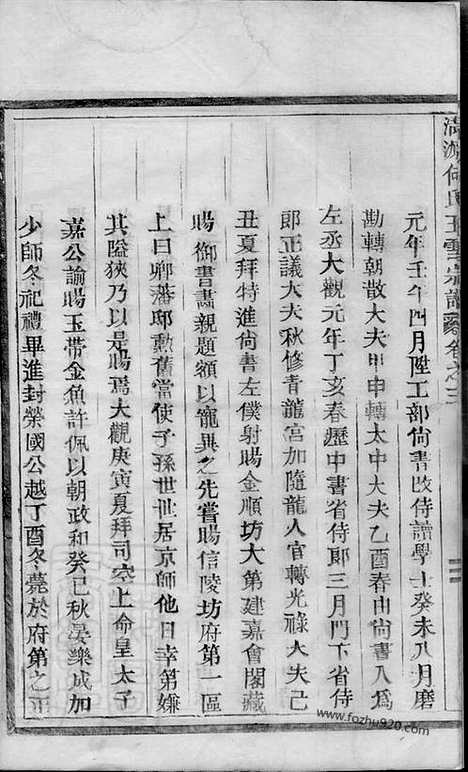 清源何氏玉雪宗譜卷之三
元年壬午四月陞工部尚書改侍讀學士癸未八月磨
勘轉朝散大夫甲申轉太中大夫乙酉春由尚書入為
左丞大觀元年丁亥春歷中書省侍郎三月門下省侍
郎正議大夫秋修青龍宮加隨龍人官轉光祿大夫己
丑夏拜特進尚書左僕射賜金順坊大第建嘉會閣藏
賜御書畫親題額以寵異之先嘗賜信陵坊府第一區
上曰卿藩邸勳舊當使子孫世世居京師他日幸第嫌
其隘狹乃以是賜焉大觀庚寅夏拜司空上命皇太子
嘉公諭賜玉帶金魚許佩以朝政和癸巳秋晏樂成加
少師冬祀禮畢進封榮國公越丁酉冬薨於府第之正
www.fozhu920.com